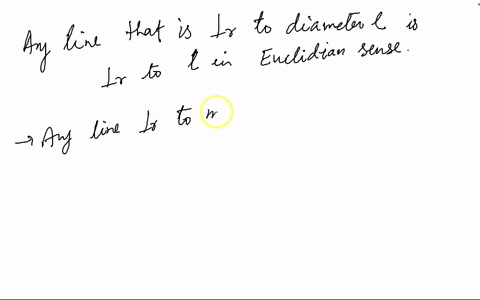 Any line that is ⊥r to diameter l is
⊥r to l in Euclidian sense.
→ Any line ⊥r to m